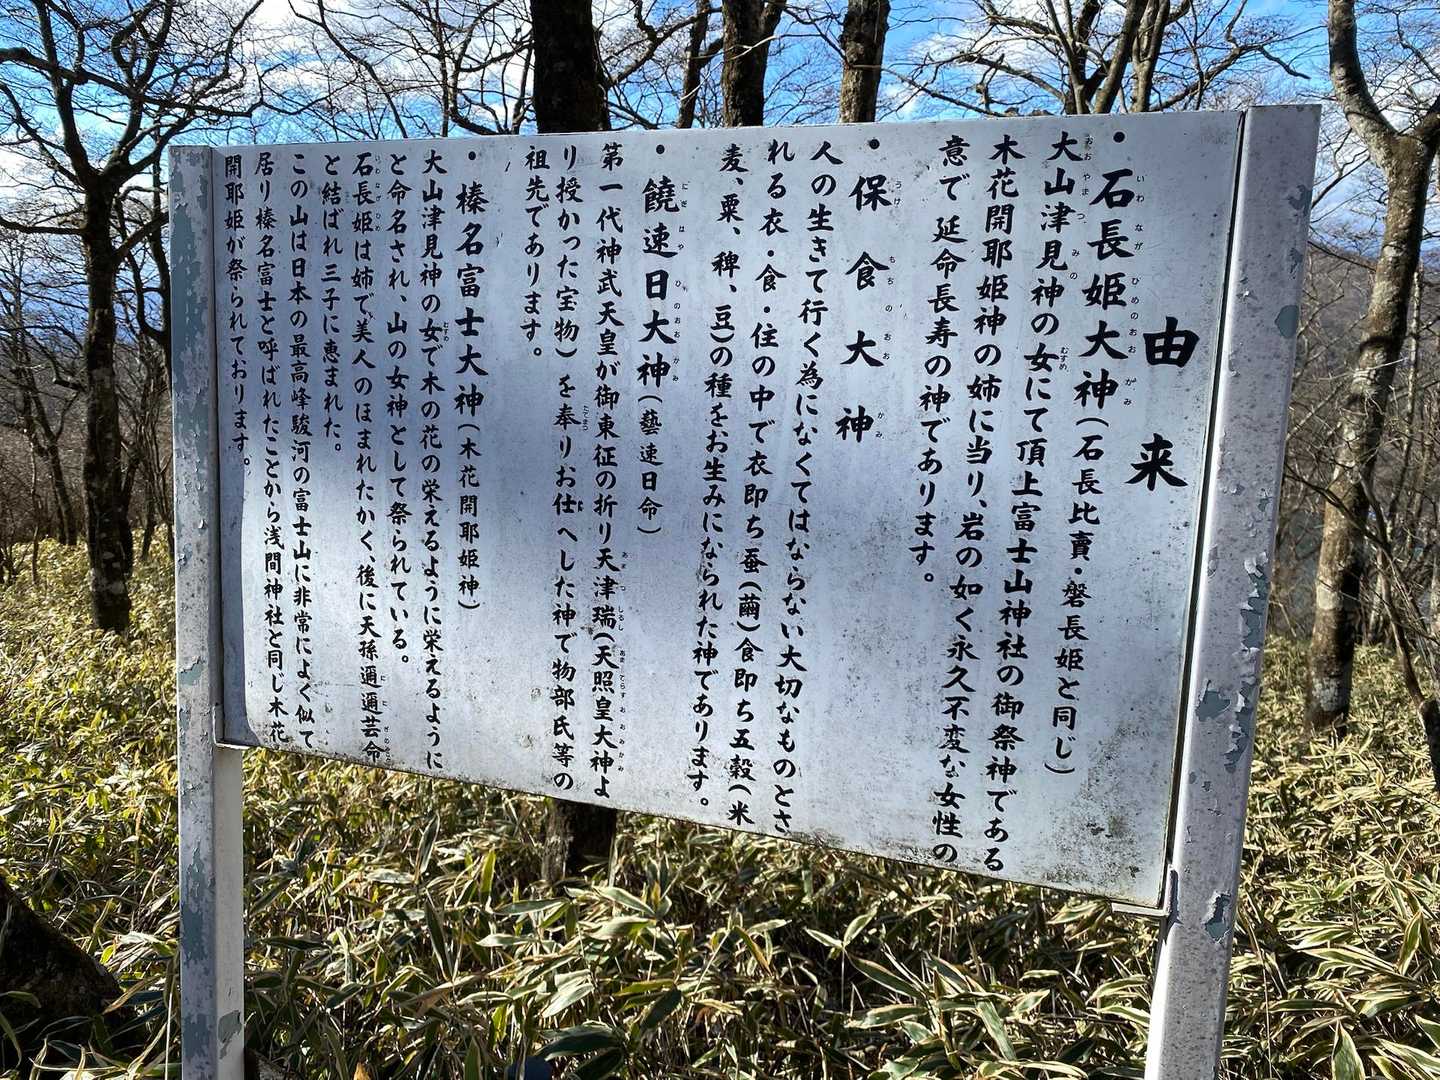 由来
・石長姫大神(石長比賣・磐長姫と同じ)
大山津見神の女にて頂上富士山神社の御祭神である
木花開耶姫神の姉に当り、岩の如く永久不変な女性の
意で延命長寿の神であります。
・保食大神
人の生きて行く為になくてはならない大切なものとさ
れる衣・食・住の中で衣即ち蚕(繭)食即ち五穀(米
麦、粟、稗、豆)の種をお生みになられた神であります。
・饒速日大神(藝速日命)
第一代神武天皇が御東征の折り天津瑞(天照皇大神よ
り授かった宝物)を奉りお仕へした神で物部氏等の
祖先であります。
・榛名富士大神(木花開耶姫神)
大山津見神の女で木の花の栄えるように栄えるように
と命名され、山の女神として祭られている。
石長姫は姉で美人のほまれたかく、後に天孫邇邇芸命
と結ばれ三子に恵まれた。
この山は日本の最高峰駿河の富士山に非常によく似て
居り榛名富士と呼ばれたことから浅間神社と同じ木花
開耶姫が祭られております。